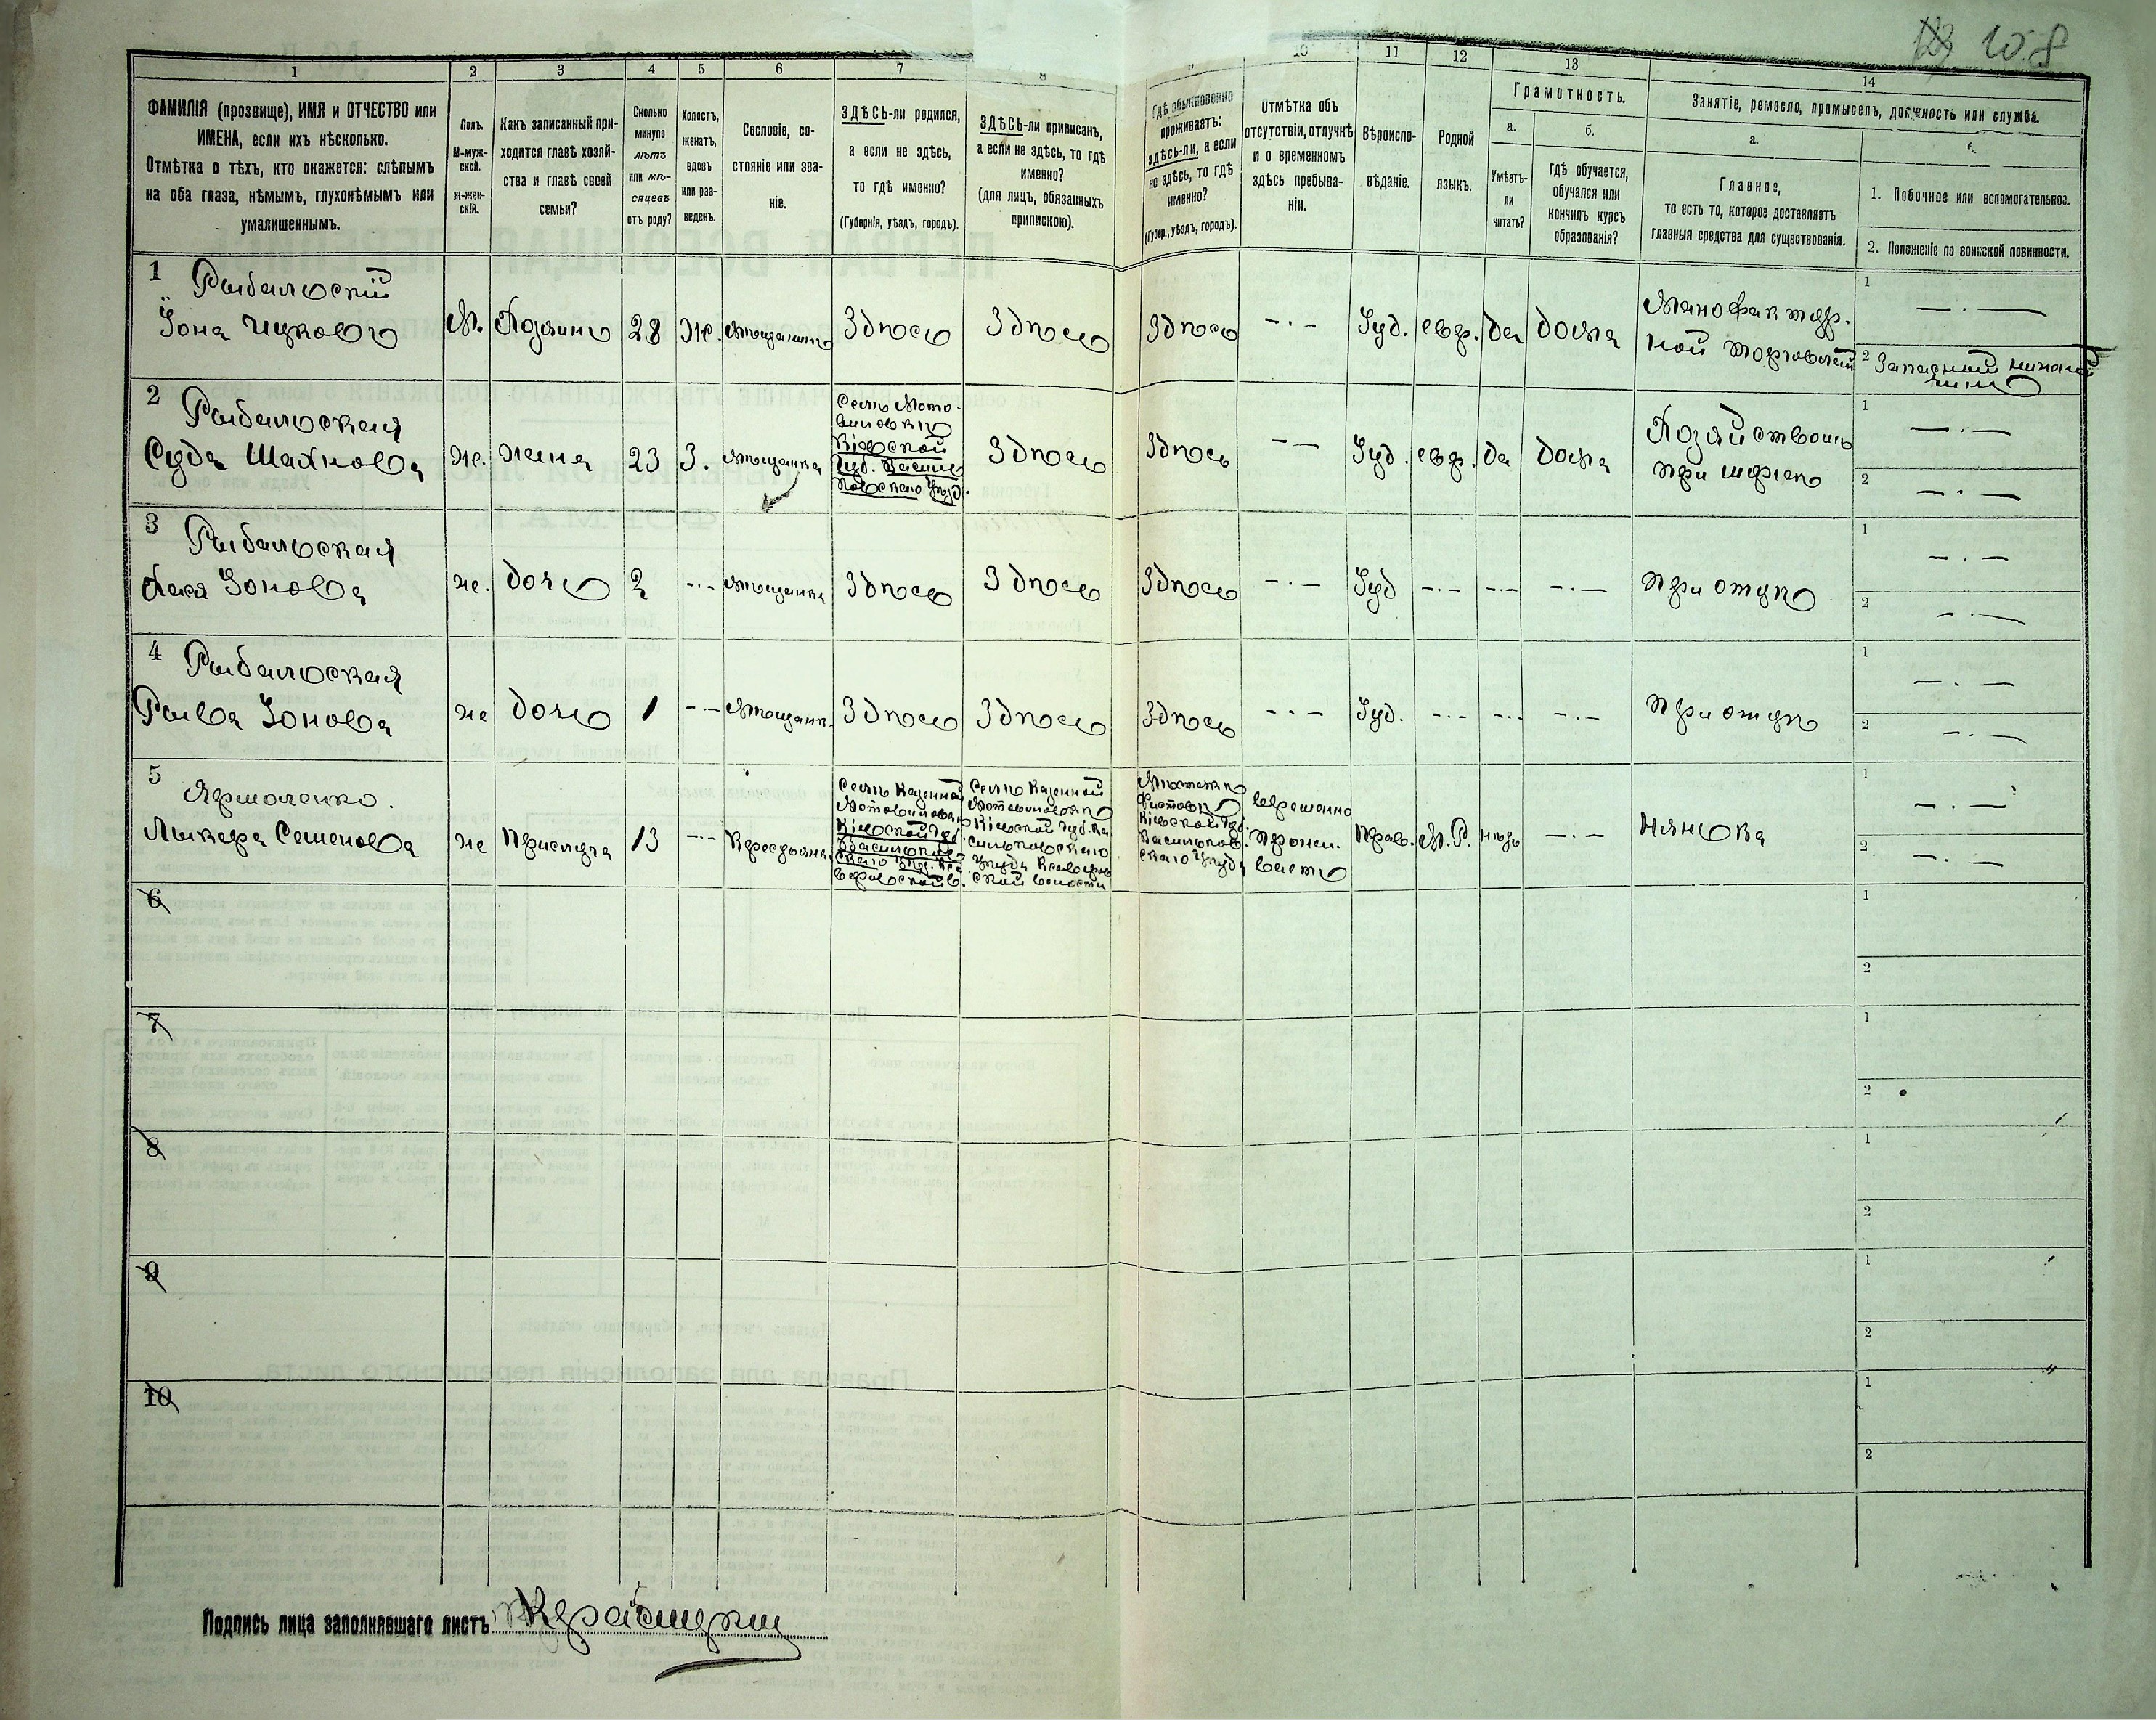 108
1
2
3
4
5
6
7
8
9
10
11
12
13
14
ФАМИЛІЯ (прозвище), ИМЯ и ОТЧЕСТВО или
ИМЕНА, если ихъ нѣсколько.
Отмѣтка о тѣхъ, кто окажется: слѣпымъ
на оба глаза, нѣмымъ, глухонѣмымъ или
умалишеннымъ.
Полъ.
М-муж-
скй.
ж-жен-
скій.
Какъ записанный при-
ходится главѣ хозяй-
ства и главѣ своей
семьи?
Сколько
минуло
лѣтъ
или мѣ-
сяцевъ
отъ роду?
Холостъ,
женатъ,
вдовъ
или раз-
веденъ.
Сословіе, со-
стояніе или зва-
ніе.
ЗДѢСЬ-ли родился,
а если не здѣсь,
то гдѣ именно?
(Губернія, уѣздъ, городъ).
ЗДѢСЬ-ли приписанъ,
а если не здѣсь, то гдѣ
именно?
(для лицъ, обязанныхъ
припискою).
Гдѣ обыкновенно
проживаетъ:
здѣсь-ли, а если
не здѣсь, то гдѣ
именно?
(Губер., уѣздъ, городъ).
Отмѣтка объ
отсутствіи, отлучкѣ
и о временномъ
здѣсь пребыва-
ніи.
Вѣроиспо-
вѣданіе.
Родной
языкъ.
Грамотность.
а.
б.
Умѣетъ-
ли
читать?
гдѣ обучается,
обучался или
кончилъ курсъ
образованія?
Занятіе, ремесло, промыселъ, должность или служба.
а.
Главное,
то есть то, которое доставляетъ
главныя средства для существованія.
1. Побочное или вспомогательное.
2. Положеніе по воинской повинности.
1
Рыбальскій
Іона Ицковъ
М.
Хозяинъ
28
Ж.
мѣщанинъ
Здѣсь
Здѣсь
Здѣсь
— . —
Іуд.
евр.
да
дома
Манофактур.
ной торговлей
1
— . —
2 Запасный нижній
чинъ
2
Рыбальская
Суда Шахнова
же.
жена
23
З.
мѣщанка
Село Мото-
виловкѣ
Кіевской
Губ. Василь
ковскаго Уѣзд.
Здѣсь
Здѣсь
— —
Іуд.
евр.
да
дома
Хозяйством
при мужѣ
1
— . —
2
— . —
3
Рыбальская
Хая Іонова
же.
дочь
2
— . —
мѣщанка
Здѣсь
Здѣсь
Здѣсь
— . —
Іуд
— . —
— . —
— . —
при отцѣ
1
— . —
2
— . —
4
Рыбальская
Рыва Іонова
же
дочь
1
— . —
мѣщанк.
Здѣсь
Здѣсь
Здѣсь
— . —
Іуд.
— . —
— . —
— . —
при отцѣ
1
— . —
2
— . —
5
Ярмоленко.
Лыкера Семенова
же
прислуга
13
— . —
Крестьянк.
Село Казенной
Мотовиловкѣ
Кіевской Губ.
Васильков
скаго Уѣз.
Село Казенной
Мотовиловкѣ
Кіевской Губ. Ва
сильковскаго
Уѣзда
ской волости
Мѣстечкѣ
Фастовѣ
Кіевской Губ.
Васильков.
скаго Уѣзд.
временно
прожи.
ваетъ
Прав.
М. Р.
нѣтъ
— . —
Нянька
1
— . —
2
— . —
6
1
2
7
1
2
8
1
2
9
1
2
10
1
2
Подпись лица заполнявшаго листъ